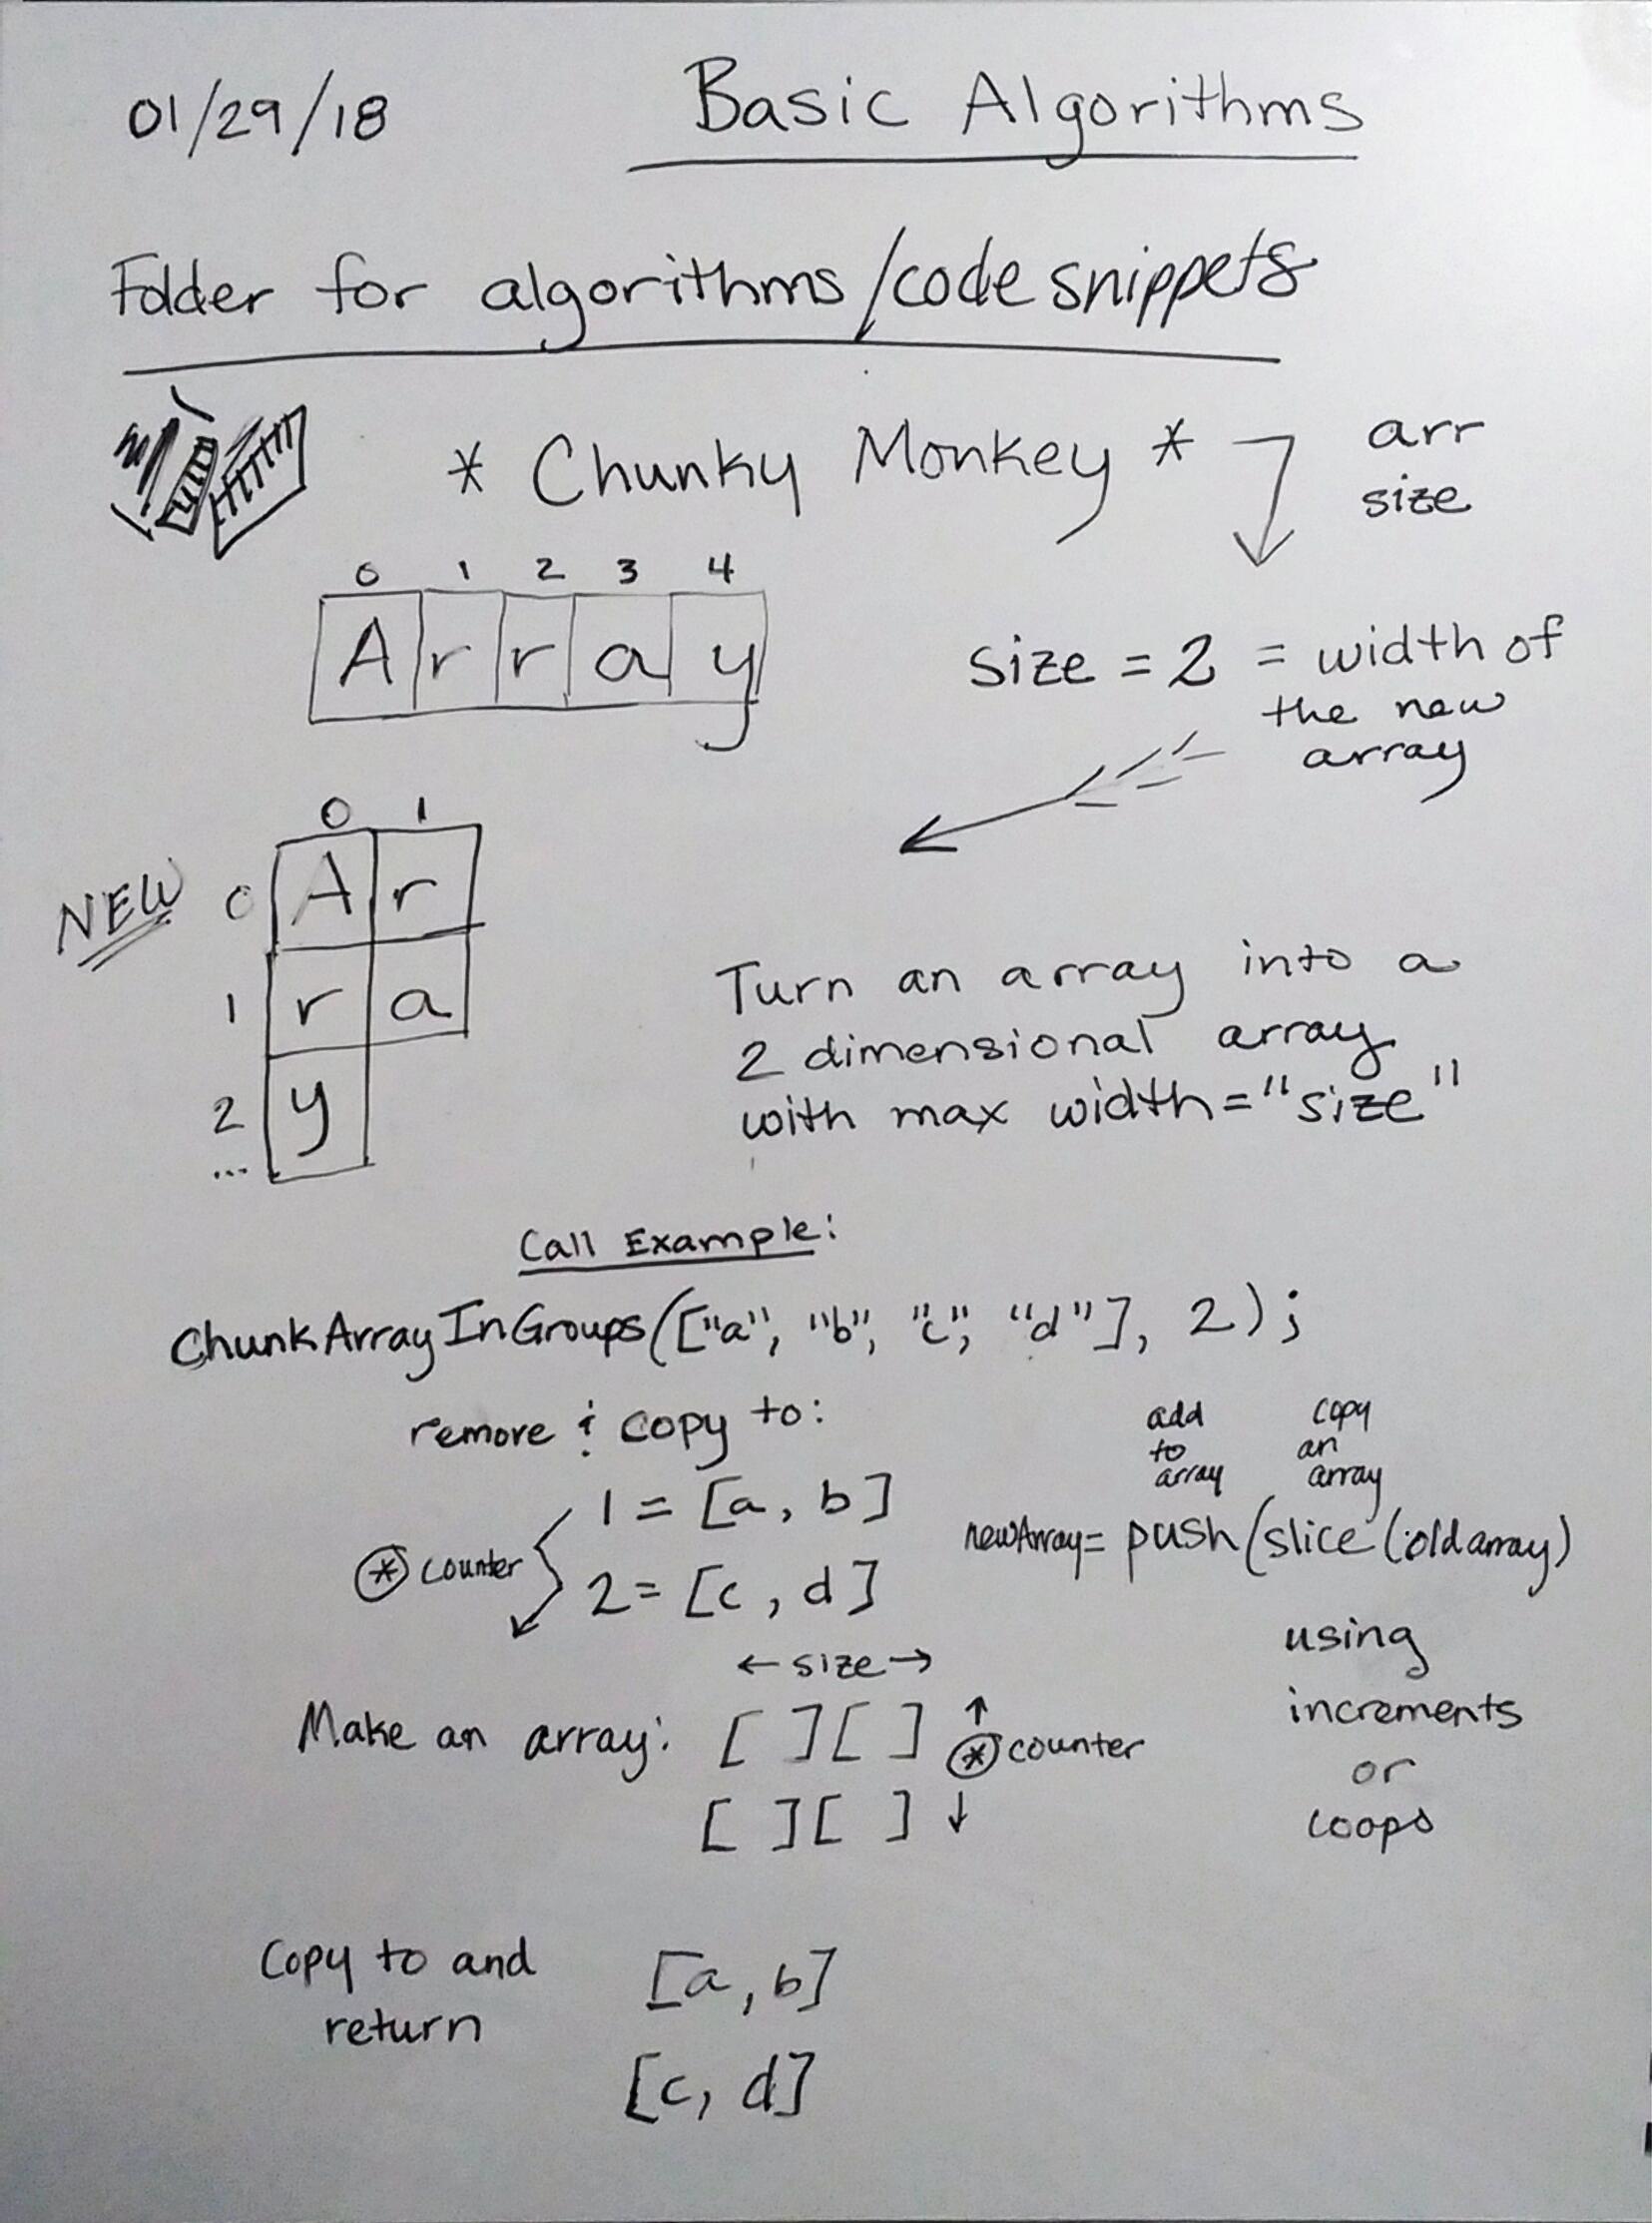 01/29/18 Basic Algorithms
Folder for algorithms/code snippets
* Chunky Monkey *
arr
size
0 1 2 3 4
A r r a y
size = 2 = width of
the new
array
NEW
0 1
0 A r
1 r a
2 y
...
Turn an array into a
2 dimensional array
with max width="size"
Call Example:
ChunkArrayInGroups(["a", "b", "c", "d"], 2);
remove & copy to:
1 = [a, b]
* counter
2 = [c, d]
add
to
array
copy
an
array
newArray= push(slice(oldarray)
using
increments
or
loops
← size →
Make an array: [ ][ ] ↑
* counter
[ ][ ] ↓
Copy to and
return
[a, b]
[c, d]